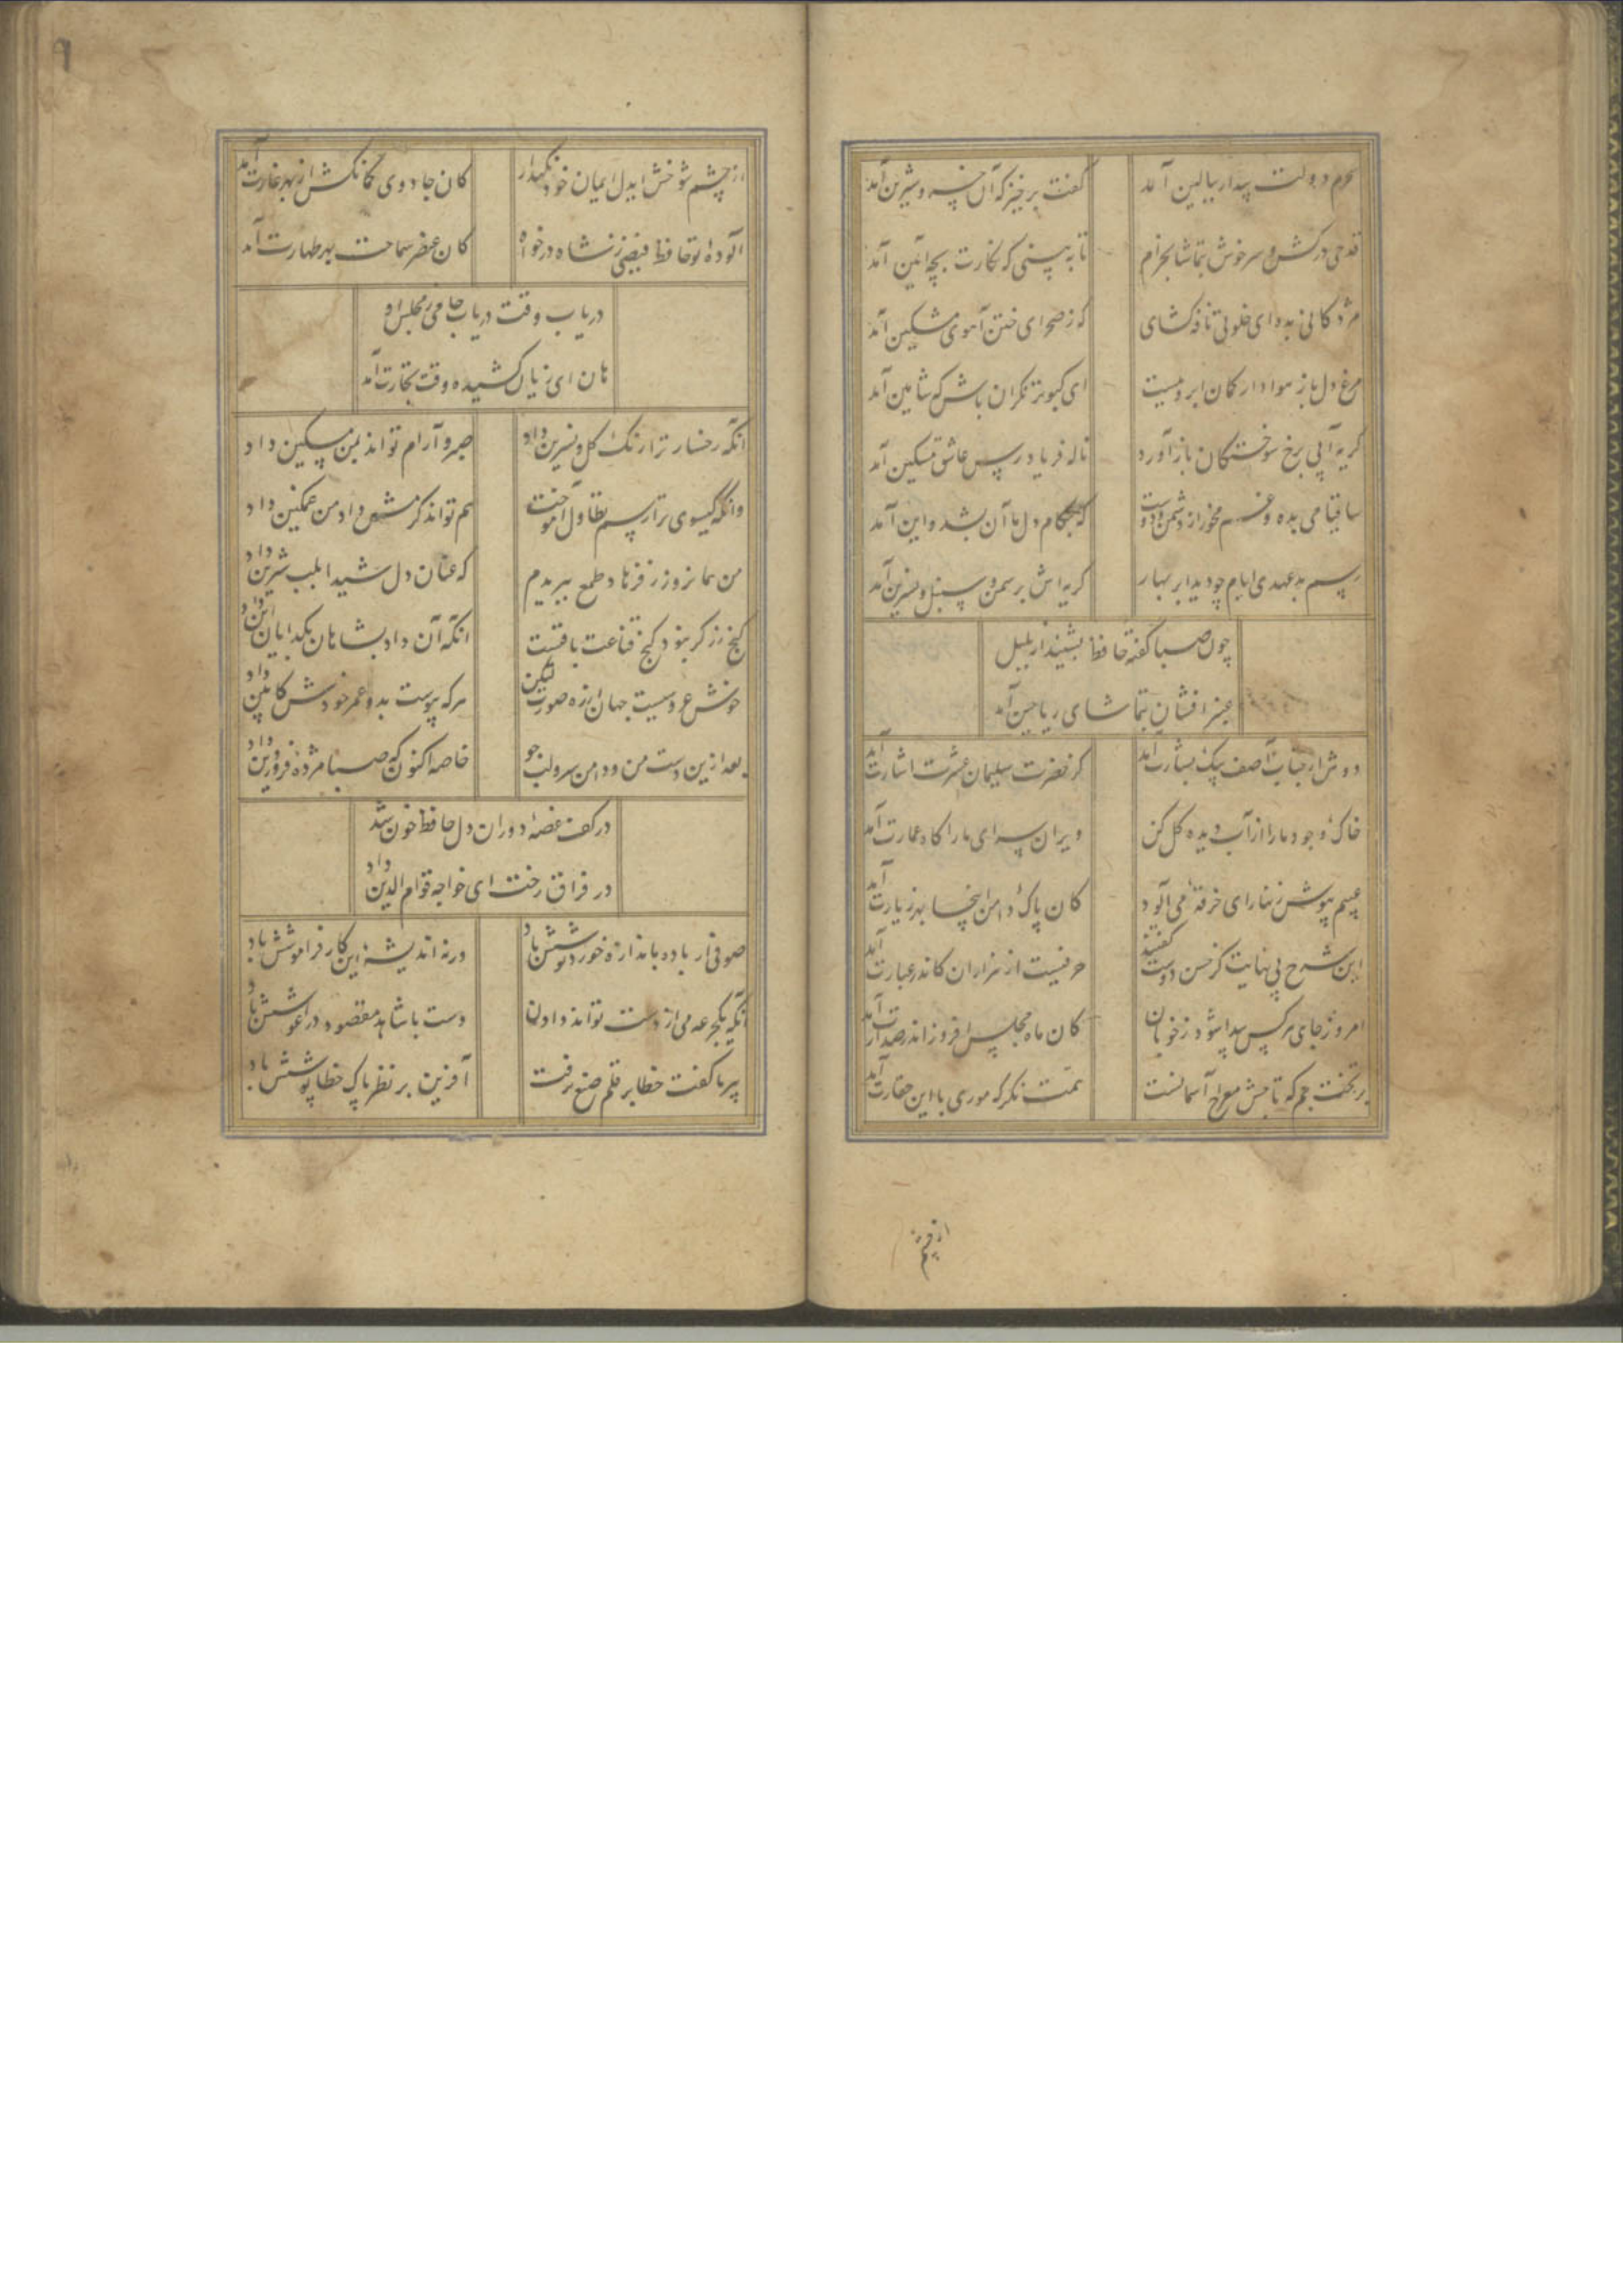 سحرم دولت بیدار ببالین آمد
گفت برخیز که آن خسرو شیرین آمد
قدحی درکش و سرخوش بتماشا بخرام
تا به بینی که نگارت بچه آیین آمد
مژدگانی بده ای خلوتی نافه گشای
که ز صحرای ختن آهوی مشکین آمد
مرغ دل باز هوادار کمان ابروییست
ای کبوتر نگران باش که شاهین آمد
گریه آبی برخ سوختگان باز آورد
ناله فریادرس عاشق مسکین آمد
ساقیا می بده و غم مخور از دشمن و دوست
که بکام دل ما آن بشد و این آمد
رسم بدعهدی ایام چو دید ابر بهار
گریه اش بر سمن و سنبل و نسرین آمد
چون صبا گفته حافظ بشنید از بلبل
عنبر افشان بتماشای ریاحین آمد
دوش از جناب آصف پیک بشارت آمد
کز حضرت سلیمان عشرت اشارت آمد
خاک وجود ما را از آب دیده گل کن
ویران سرای ما را گاه عمارت آمد
عیبم بپوش زنهار ای خرقهٔ می آلود
کان پاک دامن اینجا بهر زیارت آمد
این شرح بی نهایت کز حسن دوست گفتند
حرفیست از هزاران کاندر عبارت آمد
امروز جای هر کس پیدا شود ز خوبان
کان ماه مجلس افروز اندر صدارت آمد
بر تخت جم که تاجش معراج آسمانست
همت نگر که موری با این حقارت آمد
از چشم
از چشم شوخش ایدل ایمان خود نگهدار
کان جادوی کمانکش از بهر غارت آمد
آلودهٔ تو حافظ فیضی ز شاه درخواه
کان عنصر سماحت بهر طهارت آمد
دریاب وقت دریاب جامی ز مجلس او
هان ای زیان کشیده وقت تجارت آمد
آنکه رخسار ترا رنگ گل و نسرین داد
صبر و آرام تواند بمن مسکین داد
وانکه گیسوی ترا رسم تطاول آموخت
هم تواند کرمش داد من غمگین داد
من همانروز ز فرهاد طمع ببریدم
که عنان دل شیدا بلب شیرین داد
گنج زر گر نبود کنج قناعت باقیست
آنکه آن داد بشاهان بگدایان این داد
خوش عروسیست جهان از ره صورت لیکن
هر که پیوست بدو عمر خودش کابین داد
بعد ازین دست من و دامن سرو لب جو
خاصه اکنون که صبا مژدهٔ فروردین داد
در کف غصهٔ دوران دل حافظ خون شد
در فراق رخت ای خواجه قوام الدین داد
صوفی ار باده باندازه خورد نوشش باد
ورنه اندیشهٔ این کار فراموشش باد
آنکه یکجرعه می از دست تواند دادن
دست با شاهد مقصود در آغوشش باد
پیر ما گفت خطا بر قلم صنع نرفت
آفرین بر نظر پاک خطا پوشش باد